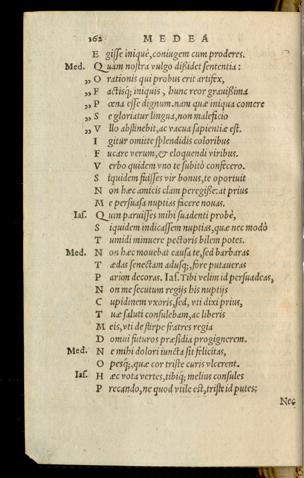 162 MEDEA
E gisse iniquè, coniugem cum proderes.
Med. Q uam nostra vulgo dissidet sententia:
„O rationis qui probus erit artifex,
„F actisq; iniquis, hunc reor grauissima
„P œna esse dignum. nam quæ iniqua comere
„S e gloriatur lingua, non maleficio
„V llo abstinebit, ac vacua sapientiæ est.
I gitur omitte splendidis coloribus
F ucare verum, & eloquendi viribus.
V erbo quidem vno te subitò conficero.
S iquidem fuisses vir bonus, te oportuit
N on hæc amicis clam peregisse: at prius
M e persuasa nuptias ficere nouas.
Ias. Q um paruisses mihi suadenti probè,
S iquidem indicassem nuptias, quæ nec modò
T umidi minuere pectoris bilem potes.
Med. N on hæc mouebat causa te, sed barbaras
T ædas senectam adusq;, fore putaueras
P arùm decoras. Ias. Tibi velim id persuadeas,
N on me secutum regijs his nuptijs
C upidinem vxoris, sed, vti dixi prius,
T uæ saluti consulebam, ac liberis
M eis, vti de stirpe fratres regia
D omui futuros præsidia progignerem.
Med. N e mihi dolori iuncta sit felicitas,
O pesq;, quæ cor triste curis vlcerent.
Ias. H æc vota vertes, tibiq; melius consules
P recando, ne quod vtile est, triste id putes:
Nec